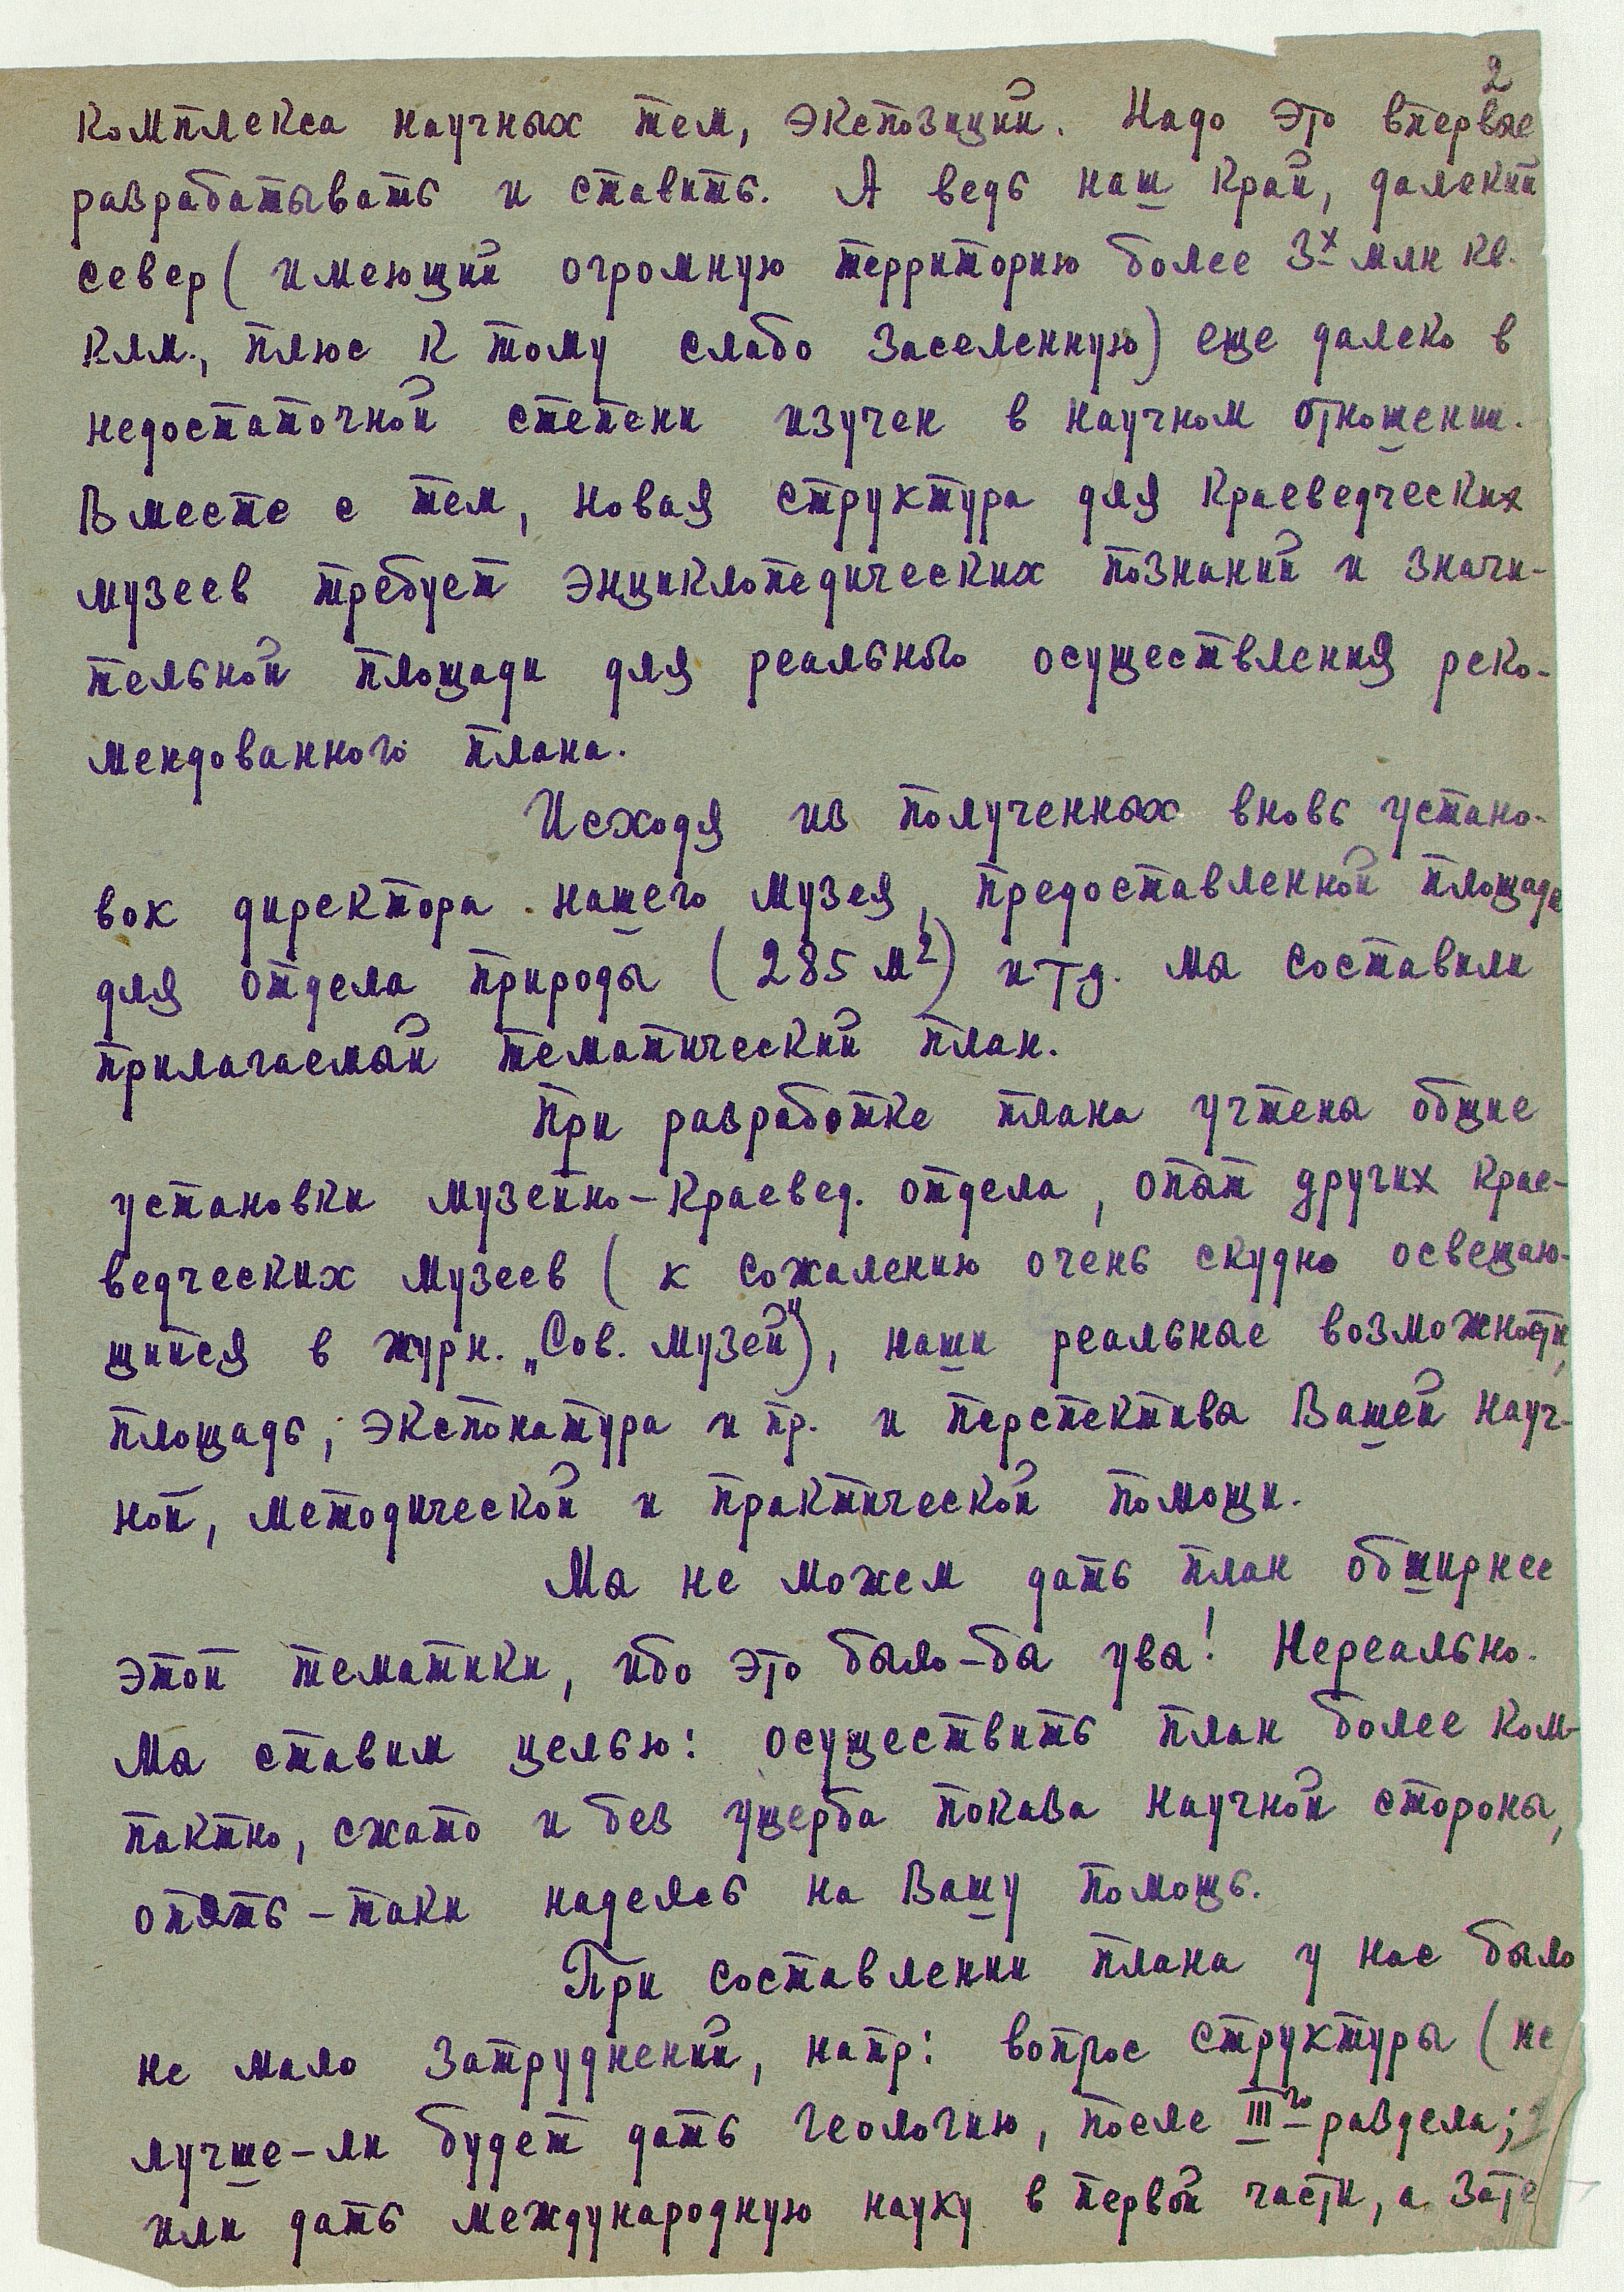 2
комплекса научных тем, экспозиций. Надо это впервые
разрабатывать и ставить. А ведь наш край, далекий
север (имеющий огромную территорию более 3х млн кв.
клм., плюс к тому слабо заселенную) еще далеко в
недостаточной степени изучен в научном отношении.
Вместе с тем, новая структура для краеведческих
музеев требует энциклопедических познаний и значи-
тельной площади для реального осуществления реко-
мендованного плана.
Исходя из полученных вновь устано-
вок директора нашего музея, предоставленной площади
для отдела природы (285 м²) и т д. мы составили
прилагаемый тематический план.
При разработке плана учтены общие
установки музейно-краевед. отдела, опыт других крае-
ведческих музеев (к сожалению очень скудно освещаю-
щийся в журн. „Сов. музей"), наши реальные возможности,
площадь, экспонатура и пр. и перспектива Вашей науч-
ной, методической и практической помощи.
Мы не можем дать план обширнее
этой тематики, ибо это было-бы увы! Нереально.
Мы ставим целью: осуществить план более ком-
пактно, сжато и без ущерба показа научной стороны,
опять-таки надеясь на Вашу помощь.
При составлении плана у нас было
не мало затруднений, напр: вопрос структуры (не
лучше-ли будет дать геологию, после III го раздела;
или дать международную науку в первой части, а зате